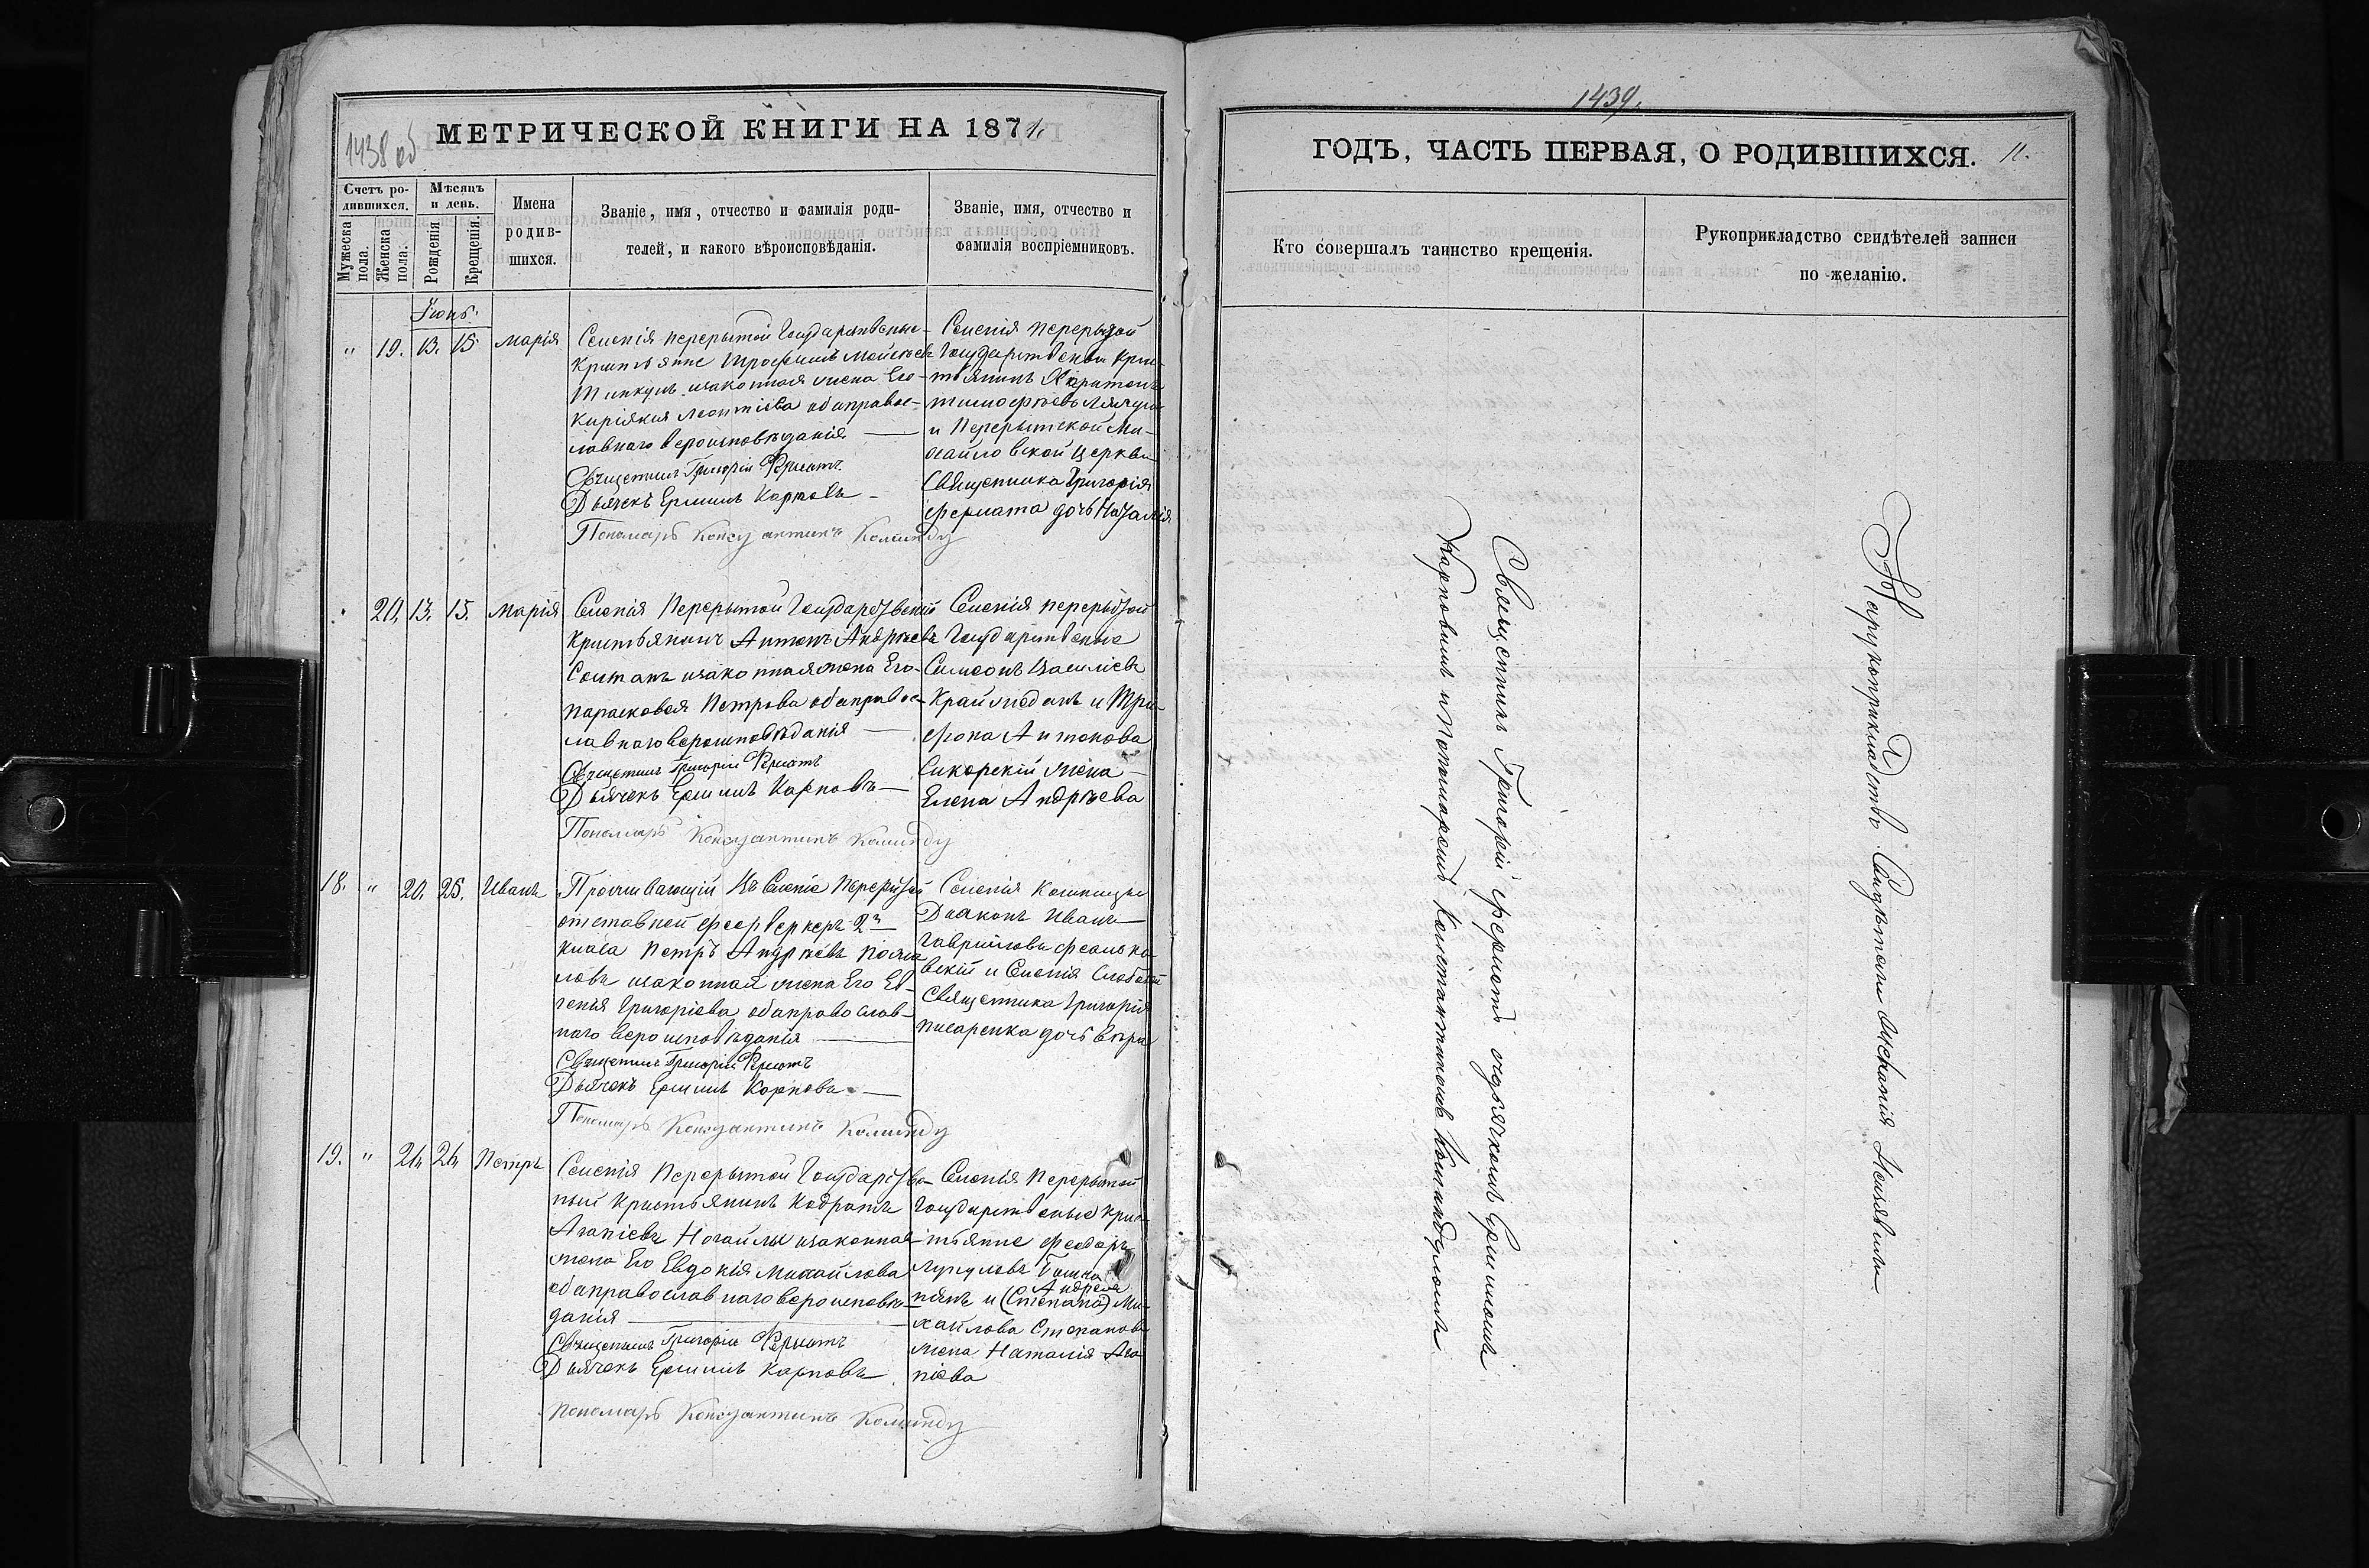 1438 об
МЕТРИЧЕСКОЙ КНИГИ НА 1871.
Счетъ ро-
дившихся.
Мѣсяцъ
и день.
Мужеска
пола.
Женска
пола.
Рожденія.
Крещенія.
Имена
родив-
шихся.
Званіе, имя, отчество и фамилія роди-
телей, и какого вѣроисповѣданія.
Званіе, имя, отчество и
фамилія воспріемниковъ.
" 19. 13. 15 Марія
Селенія Перерытой Государственые
законная жена Его
Киріякия Леонтіева оба правос-
лавнаго вероисповѣданія
Священникъ Григорій Фериатъ
Дьячекъ Ермилъ Карповъ
Пономарь Константинъ Коминду
Селенія Перерытой
Государственн Крис-
тьянинъ Харитонъ
и Перерытской Ми-
хайловской церкви
Священика Григорія
Фериата дочь Наталія
20. 13. 15. Марія
Селенія Перерытой Государственый
Кристьянинъ Антонъ Андрѣевъ
Солтанъ законная жена Его
Парасковея Петрова оба правос-
лавнаго вероисповѣданія
Священникъ Григорій Фериатъ
Дьячекъ Ермилъ Карповъ
Пономарь Константинъ Коминду
Селенія Перерытой
Государственые
Симеонъ Василіевъ
и Три-
фона Антонова
Сикорскій жена
Елена Андрѣева
18. " 20. 25. Иванъ
Проживающій Въ Селеніе Перерытой
отставной феерверкеръ 2го
класа Петръ Андрѣевъ
законная жена Его Ев-
генія Григоріева оба православ-
наго вероисповѣданія
Священникъ Григорій Фериатъ
Дьячекъ Ермилъ Карповъ
Пономарь Константинъ Коминду
Селенія
Диаконъ Иванъ
Гавриловъ
и Селенія Слободзей
Священика Григорія
Писаренка дочь Вѣра
19. " 24 24 Петръ
Селенія Перерытой Государстве-
ный Кристьянинъ Кодратъ
Агапіевъ Ногайлы законная
жена Его Евдокія Михайлова
оба православнаго вероисповѣ-
данія
Священникъ Григорій Фериатъ
Дьячекъ Ермилъ Карповъ
Пономарь Константинъ Коминду
Селенія Перерытой
Государственые Крис-
тьянне Феодоръ
Андрея
и (Степана) Ми-
хайлова Степановъ
жена Наталія Ага-
піева
1439.
ГОДЪ, ЧАСТЬ ПЕРВАЯ, О РОДИВШИХСЯ. 11.
Кто совершалъ таинство крещенія.
Рукоприкладство свидѣтелей записи
по желанію.
Священникъ Григорій Фериатъ съ дьячкомъ Ермиломъ
Карповымъ и Пономаремъ Константиномъ Коминдуломъ
На рукоприкладствѣ Свидѣтели желанія Неизъявили